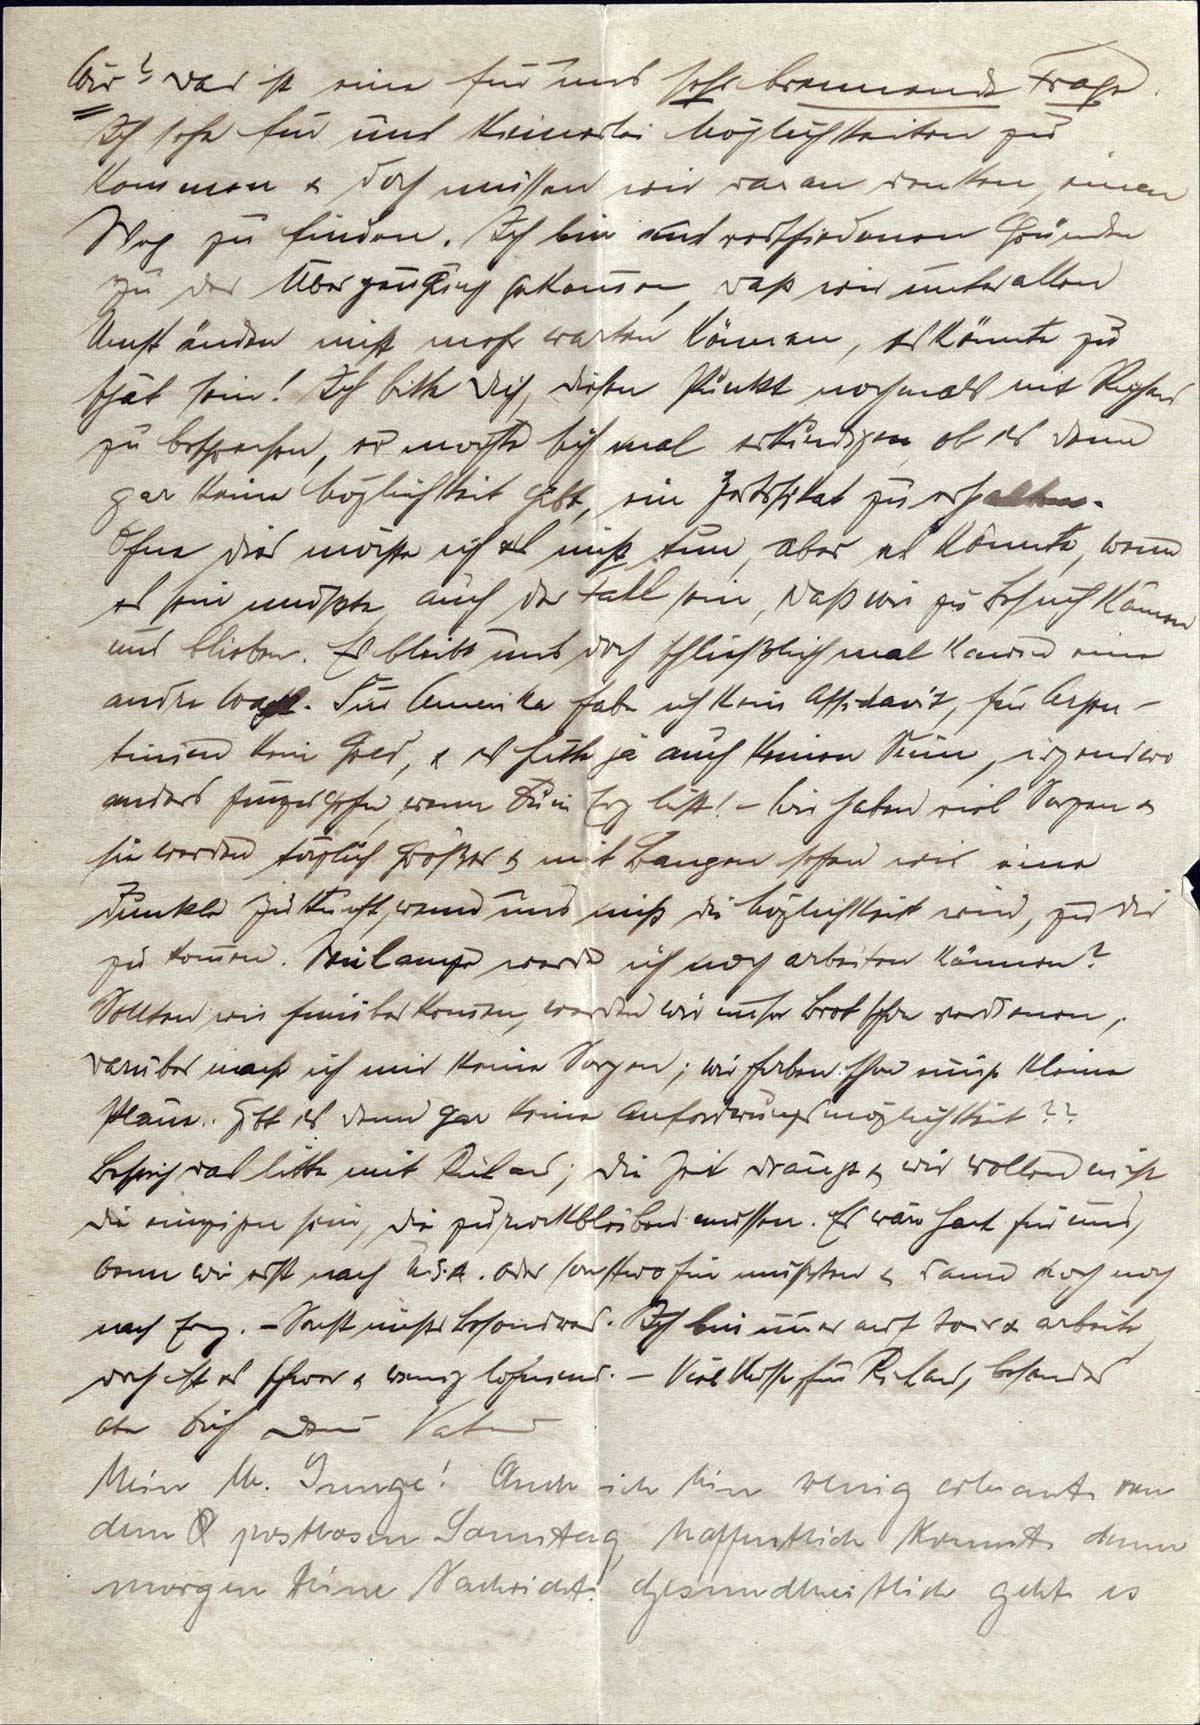 Wir? das ist eine für uns sehr brennende Frage.
Ich sehe für uns keinerlei Möglichkeiten zu
kommen & doch müssen wir daran denken, einen
Weg zu finden. Ich bin aus verschiedenen Gründen
zu der Überzeugung gekommen, daß wir unter allen
Umständen nicht mehr warten können, es könnte zu
spät sein! Ich bitte Dich, diesen Punkt nochmals mit Richard
zu besprechen, er möchte sich mal erkundigen, ob es denn
gar keine Möglichkeit gibt, ein Zertifikat zu erhalten.
Ohne dies möchte ich es nicht tun, aber es könnte, wenn
es sein müßte, auch der Fall sein, daß wir zu Besuch kämen
und blieben. Es bleibt uns doch schließlich mal kaum eine
andre Wahl. Für Amerika habe ich kein Affidavit, für Argen-
tinien kein Geld, & es hätte ja auch keinen Sinn, irgendwo
anders hinzugehen, wenn Du in Erz bist! – Wir haben viel Sorgen &
sie werden täglich größer & mit Bangen sehen wir eine
dunkle Zukunft, wenn uns nicht die Möglichkeit wird, zu Dir
zu kommen. Wie lange werde ich noch arbeiten können?
Sollten wir hinüberkommen, werden wir unser Brot schon verdienen,
darüber mache ich mir keine Sorgen; wir haben schon einige kleine
Pläne. Gibt es denn gar keine Anforderungsmöglichkeit??
Besprich das bitte mit Richard; die Zeit drängt & wir wollen nicht
die einzigen sein, die zurückbleiben müssen. Es wäre hart für uns,
wenn wir erst nach U.S.A. oder sonstwohin müßten & dann doch noch
nach Erz. – Sonst nichts Besonderes. Ich bin immer auf Tour & arbeite,
doch ist es schwer & wenig lohnend. – Viele Küsse für Richard, besonders
aber Dich Dein Vater
Mein lb. Junge! Auch ich bin wenig erbaut von
dem postlosen Samstag, hoffentlich kommt denn
morgen Deine Nachricht. Gesundheitlich geht es